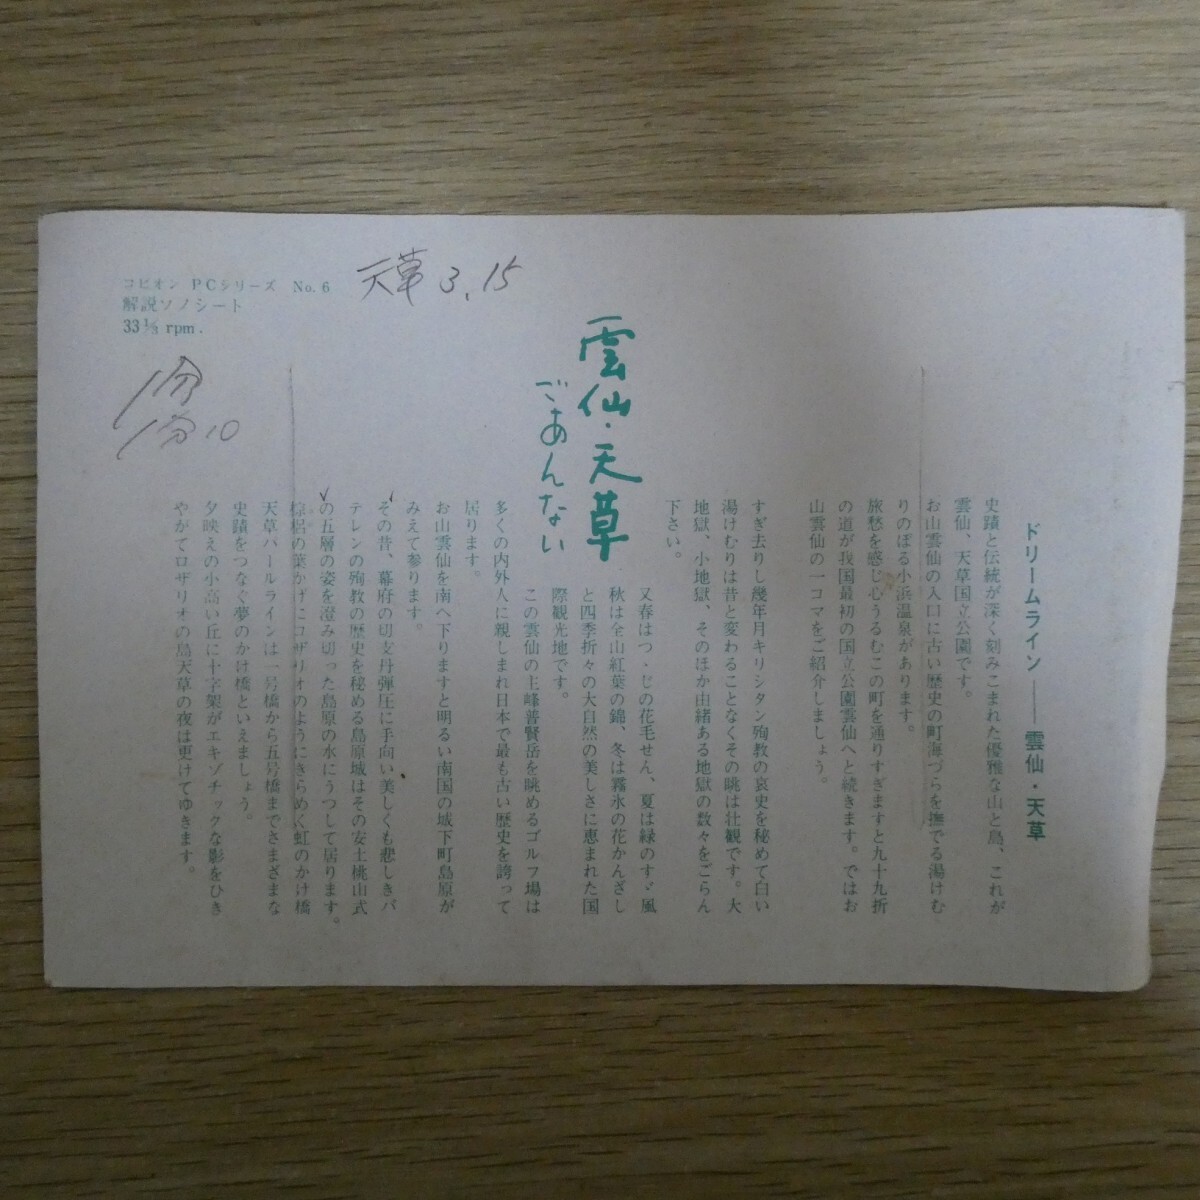 コピオン PCシリーズ No. 6
解説ソノシート
33⅓ rpm.
天草 3.15
1分
1分10
雲仙・天草
ごあんない
ドリームライン――雲仙・天草
史蹟と伝統が深く刻みこまれた優雅な山と島、これが
雲仙、天草国立公園です。
お山雲仙の入口に古い歴史の町海づらを撫でる湯けむ
りのぼる小浜温泉があります。
旅愁を感じ心うるむこの町を通りすぎますと九十九折
の道が我国最初の国立公園雲仙へと続きます。ではお
山雲仙の一コマをご紹介しましょう。
すぎ去りし幾年月キリシタン殉教の哀史を秘めて白い
湯けむりは昔と変わることなくその眺は壮観です。大
地獄、小地獄、そのほか由緒ある地獄の数々をごらん
下さい。
又春はつゝじの花毛せん、夏は緑のすゞ風
秋は全山紅葉の錦、冬は霧氷の花かんざし
と四季折々の大自然の美しさに恵まれた国
際観光地です。
この雲仙の主峰普賢岳を眺めるゴルフ場は
多くの内外人に親しまれ日本で最も古い歴史を誇って
居ります。
お山雲仙を南へ下りますと明るい南国の城下町島原が
みえて参ります。
その昔、幕府の切支丹弾圧に手向い美しくも悲しきバ
テレンの殉教の歴史を秘める島原城はその安土桃山式
の五層の姿を澄み切った島原の水にうつして居ります。
棕梠の葉かげにロザリオのようにきらめく虹のかけ橋
天草パールラインは一号橋から五号橋までさまざまな
史蹟をつなぐ夢のかけ橋といえましょう。
夕映えの小高い丘に十字架がエキゾチックな影をひき
やがてロザリオの島天草の夜は更けてゆきます。